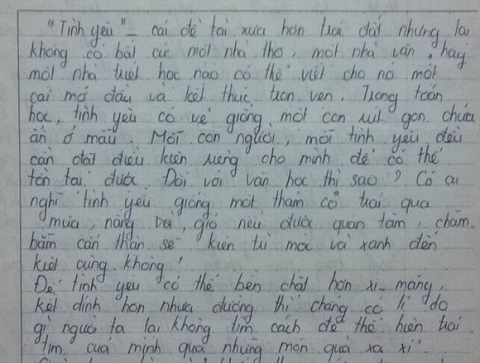 "Tình yêu" – cái đề tài xưa hơn trái đất nhưng lại
không có bất cứ một nhà thơ, một nhà văn, hay
một nhà triết học nào có thể viết cho nó một
cái mở đầu và kết thúc trọn vẹn. Trong toán
học, tình yêu có vẻ giống một con rút gọn chứa
ẩn ở mẫu. Mỗi con người, mỗi tình yêu đều
cần đặt điều kiện riêng cho mình để có thể
tồn tại được. Đối với văn học thì sao? Có ai
nghĩ tình yêu giống một thảm cỏ trải qua
mưa, nắng và gió nếu được quan tâm, chăm
bẵm cẩn thận sẽ kiên trì mọc và xanh đến
kiệt cùng không!
Để tình yêu có thể bền chặt hơn xi-măng,
kết dính hơn nhựa đường thì chẳng có lí do
gì người ta lại không tìm cách để thể hiện trái
tim của mình qua những món quà xa xỉ.